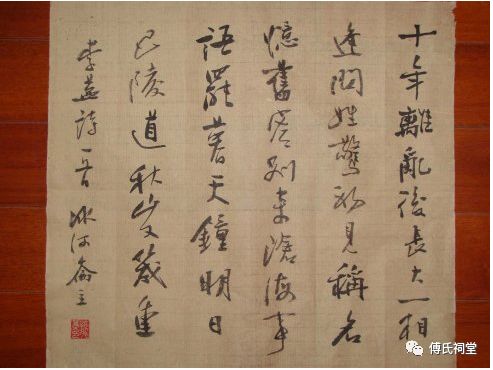 十年離亂後長大一相
逢問姓驚初見稱名
憶舊容別來滄海事
語罷暮天鐘明日
巴陵道秋山又幾重
李益詩一首 冰河主
傅氏祠堂